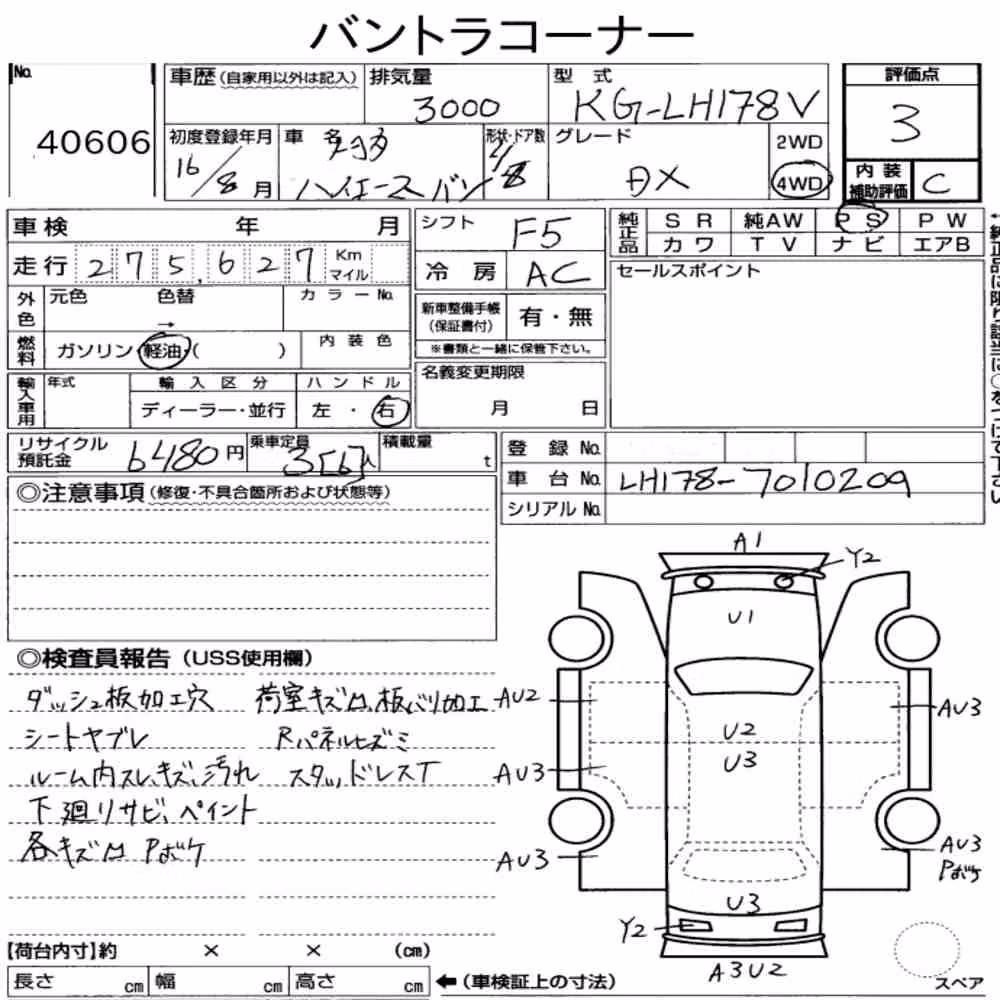 バントラコーナー
No.
40606
車歴(自家用以外は記入)
排気量
3000
型 式
KG-LH178V
評価点
3
初度登録年月
16/8月
車 名
トヨタ
ハイエースバン
形状・ドア数
グレード
DX
2WD
4WD
内 装
補助評価
C
車検 年 月
シフト
F5
純正品
SR 純AW PS PW
カワ TV ナビ エアB
走行
275,627
Km
マイル
冷 房
AC
セールスポイント
外色
元色 色替
→
カラーNo.
新車整備手帳
(保証書付)
有・無
※書類と一緒に保管下さい。
燃料
ガソリン・軽油・( )
内 装 色
名義変更期限
月 日
輸入車用
年式
輸 入 区 分
ハ ン ド ル
ディーラー・並行
左 ・ 右
リサイクル
預託金
6480円
乗車定員
3[6]人
積載量
t
登 録 No.
車 台 No.
LH178-7010209
シリアル No.
◎注意事項(修復・不具合箇所および状態等)
A1
Y2
U1
◎検査員報告(USS使用欄)
ダッシュ板加工穴
荷室キズ凹、板バリ加工
AU2
AU3
シートヤブレ
Rパネルヒズミ
U2
U3
ルーム内スレ、キズ、汚れ
スタッドレスT
AU3
下廻リサビ、ペイント
各キズ凹 Pボケ
AU3
AU3
Pボケ
U3
Y2
A3U2
【荷台内寸】約 × × (cm)
長さ cm 幅 cm 高さ cm
←(車検証上の寸法)
スペア